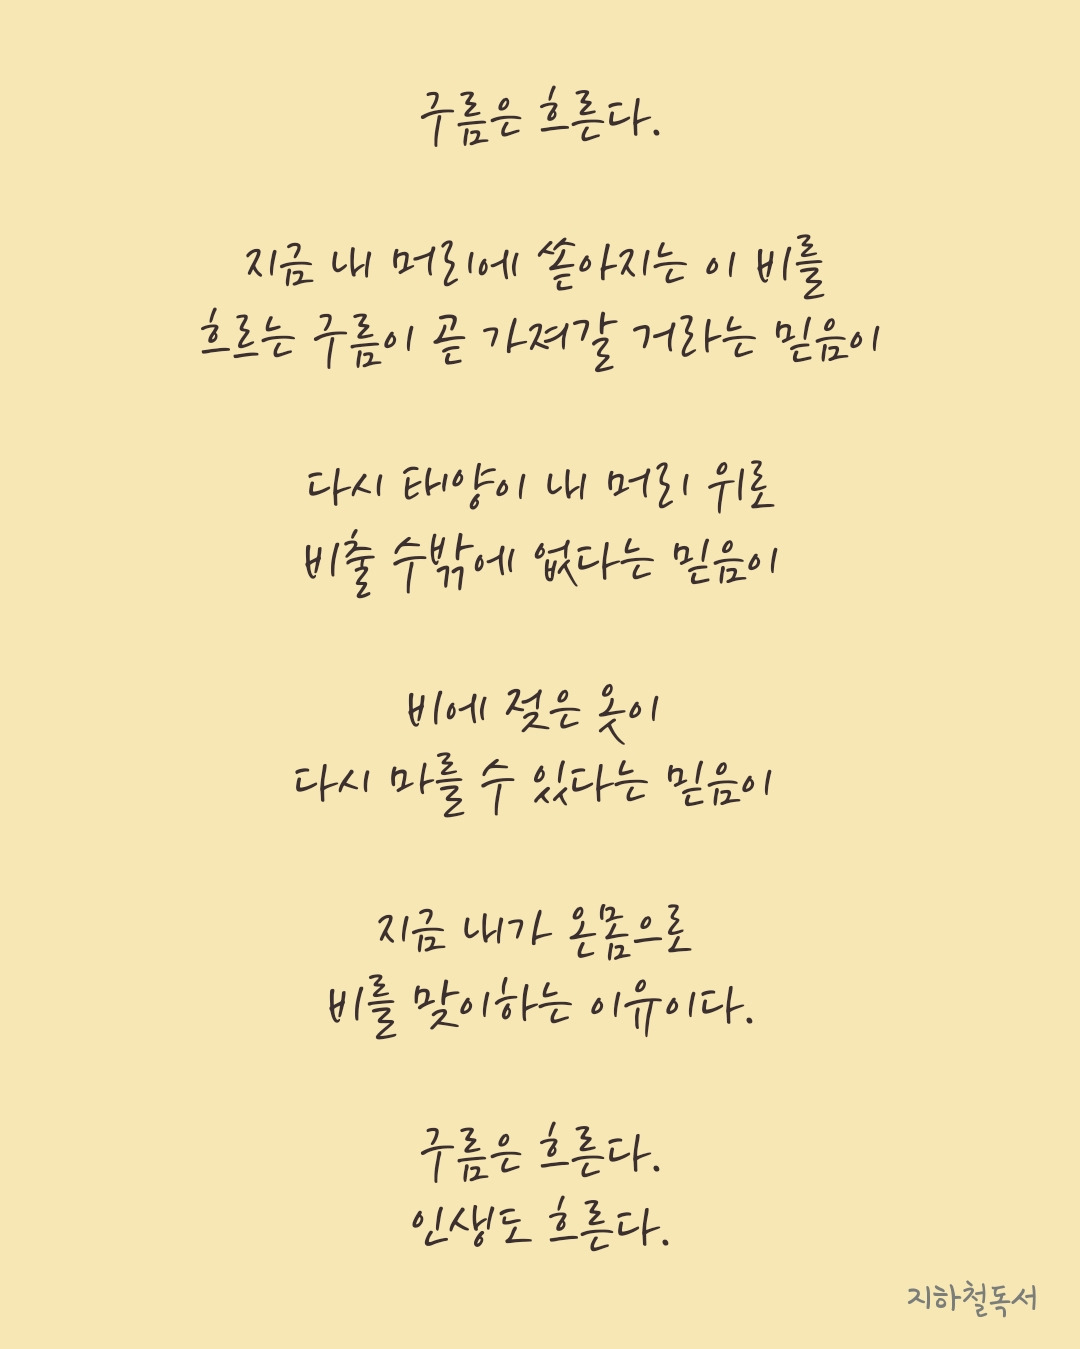 구름은 흐른다.
지금 내 머리에 쏟아지는 이 비를
흐르는 구름이 곧 가져갈 거라는 믿음이
다시 태양이 내 머리 위로
비출 수밖에 없다는 믿음이
비에 젖은 옷이
다시 마를 수 있다는 믿음이
지금 내가 온몸으로
비를 맞이하는 이유이다.
구름은 흐른다.
인생도 흐른다.
지하철독서